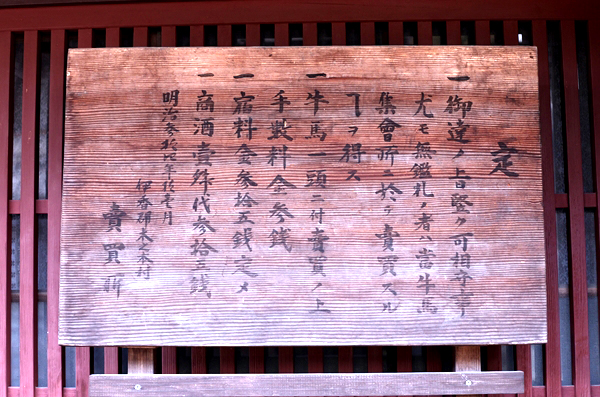 定
一 御達ノ旨堅ク可相守事
尤モ無鑑札ノ者ハ當牛馬
集會所ニ於テ賣買スル
ヿヲ得ス
一 牛馬一頭ニ付賣買ノ上
手数料金参銭
一 宿料金参拾五銭定メ
一 商酒壹
代参拾五銭
明治参拾
月
伊香郡木之本村
賣買所